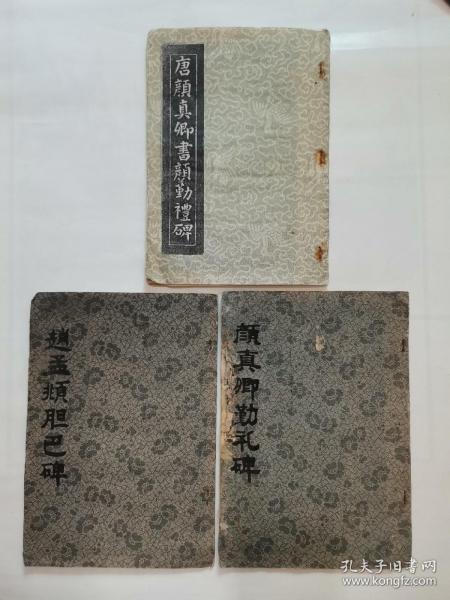 唐顔真卿書顔勤禮碑
趙孟頫胆巴碑
顔真卿勤礼碑
孔夫子旧书网
www.kongfz.com